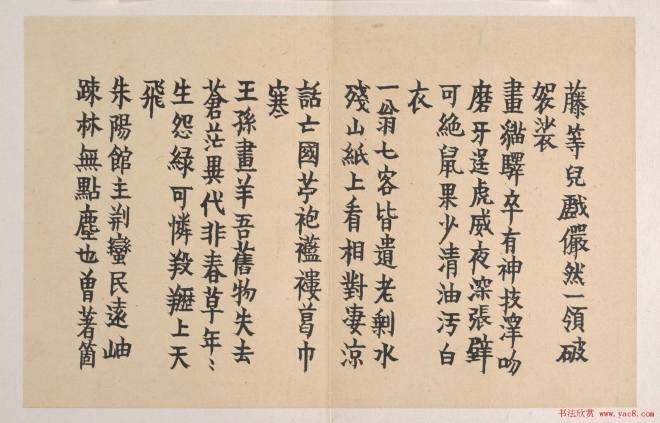 藤等兒戲儼然一領破
袈裟
畫貓驛卒有神技澤吻
磨牙逞虎威夜深張壁
可絶鼠果少清油汚白
衣
一翁七客皆遺老剩水
殘山紙上看相對凄涼
話亡國芐袍襤褸葛巾
寒
王孫畫羊吾舊物失去
蒼茫異代非春草年〻
生怨緑可憐羖䍽上天
飛
朱陽館主荆蠻民遠岫
疎林無點塵也曾著箇
书法欣赏 www.yac8.com